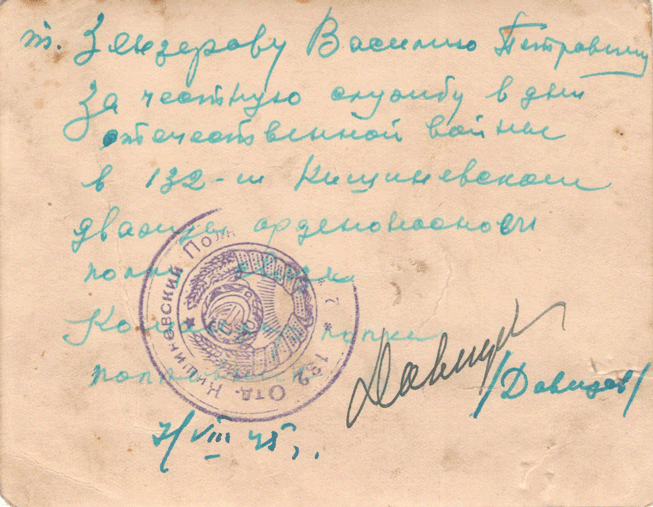 т. Зензерову Василию Петровичу
За честную службу в дни
отечественной войны
в 132-м Кишиневском
дважды орденоносном
полку
Командир полка
/Давидов/
7/VIII 45 г.
132 Отд. Кишиневский Полк